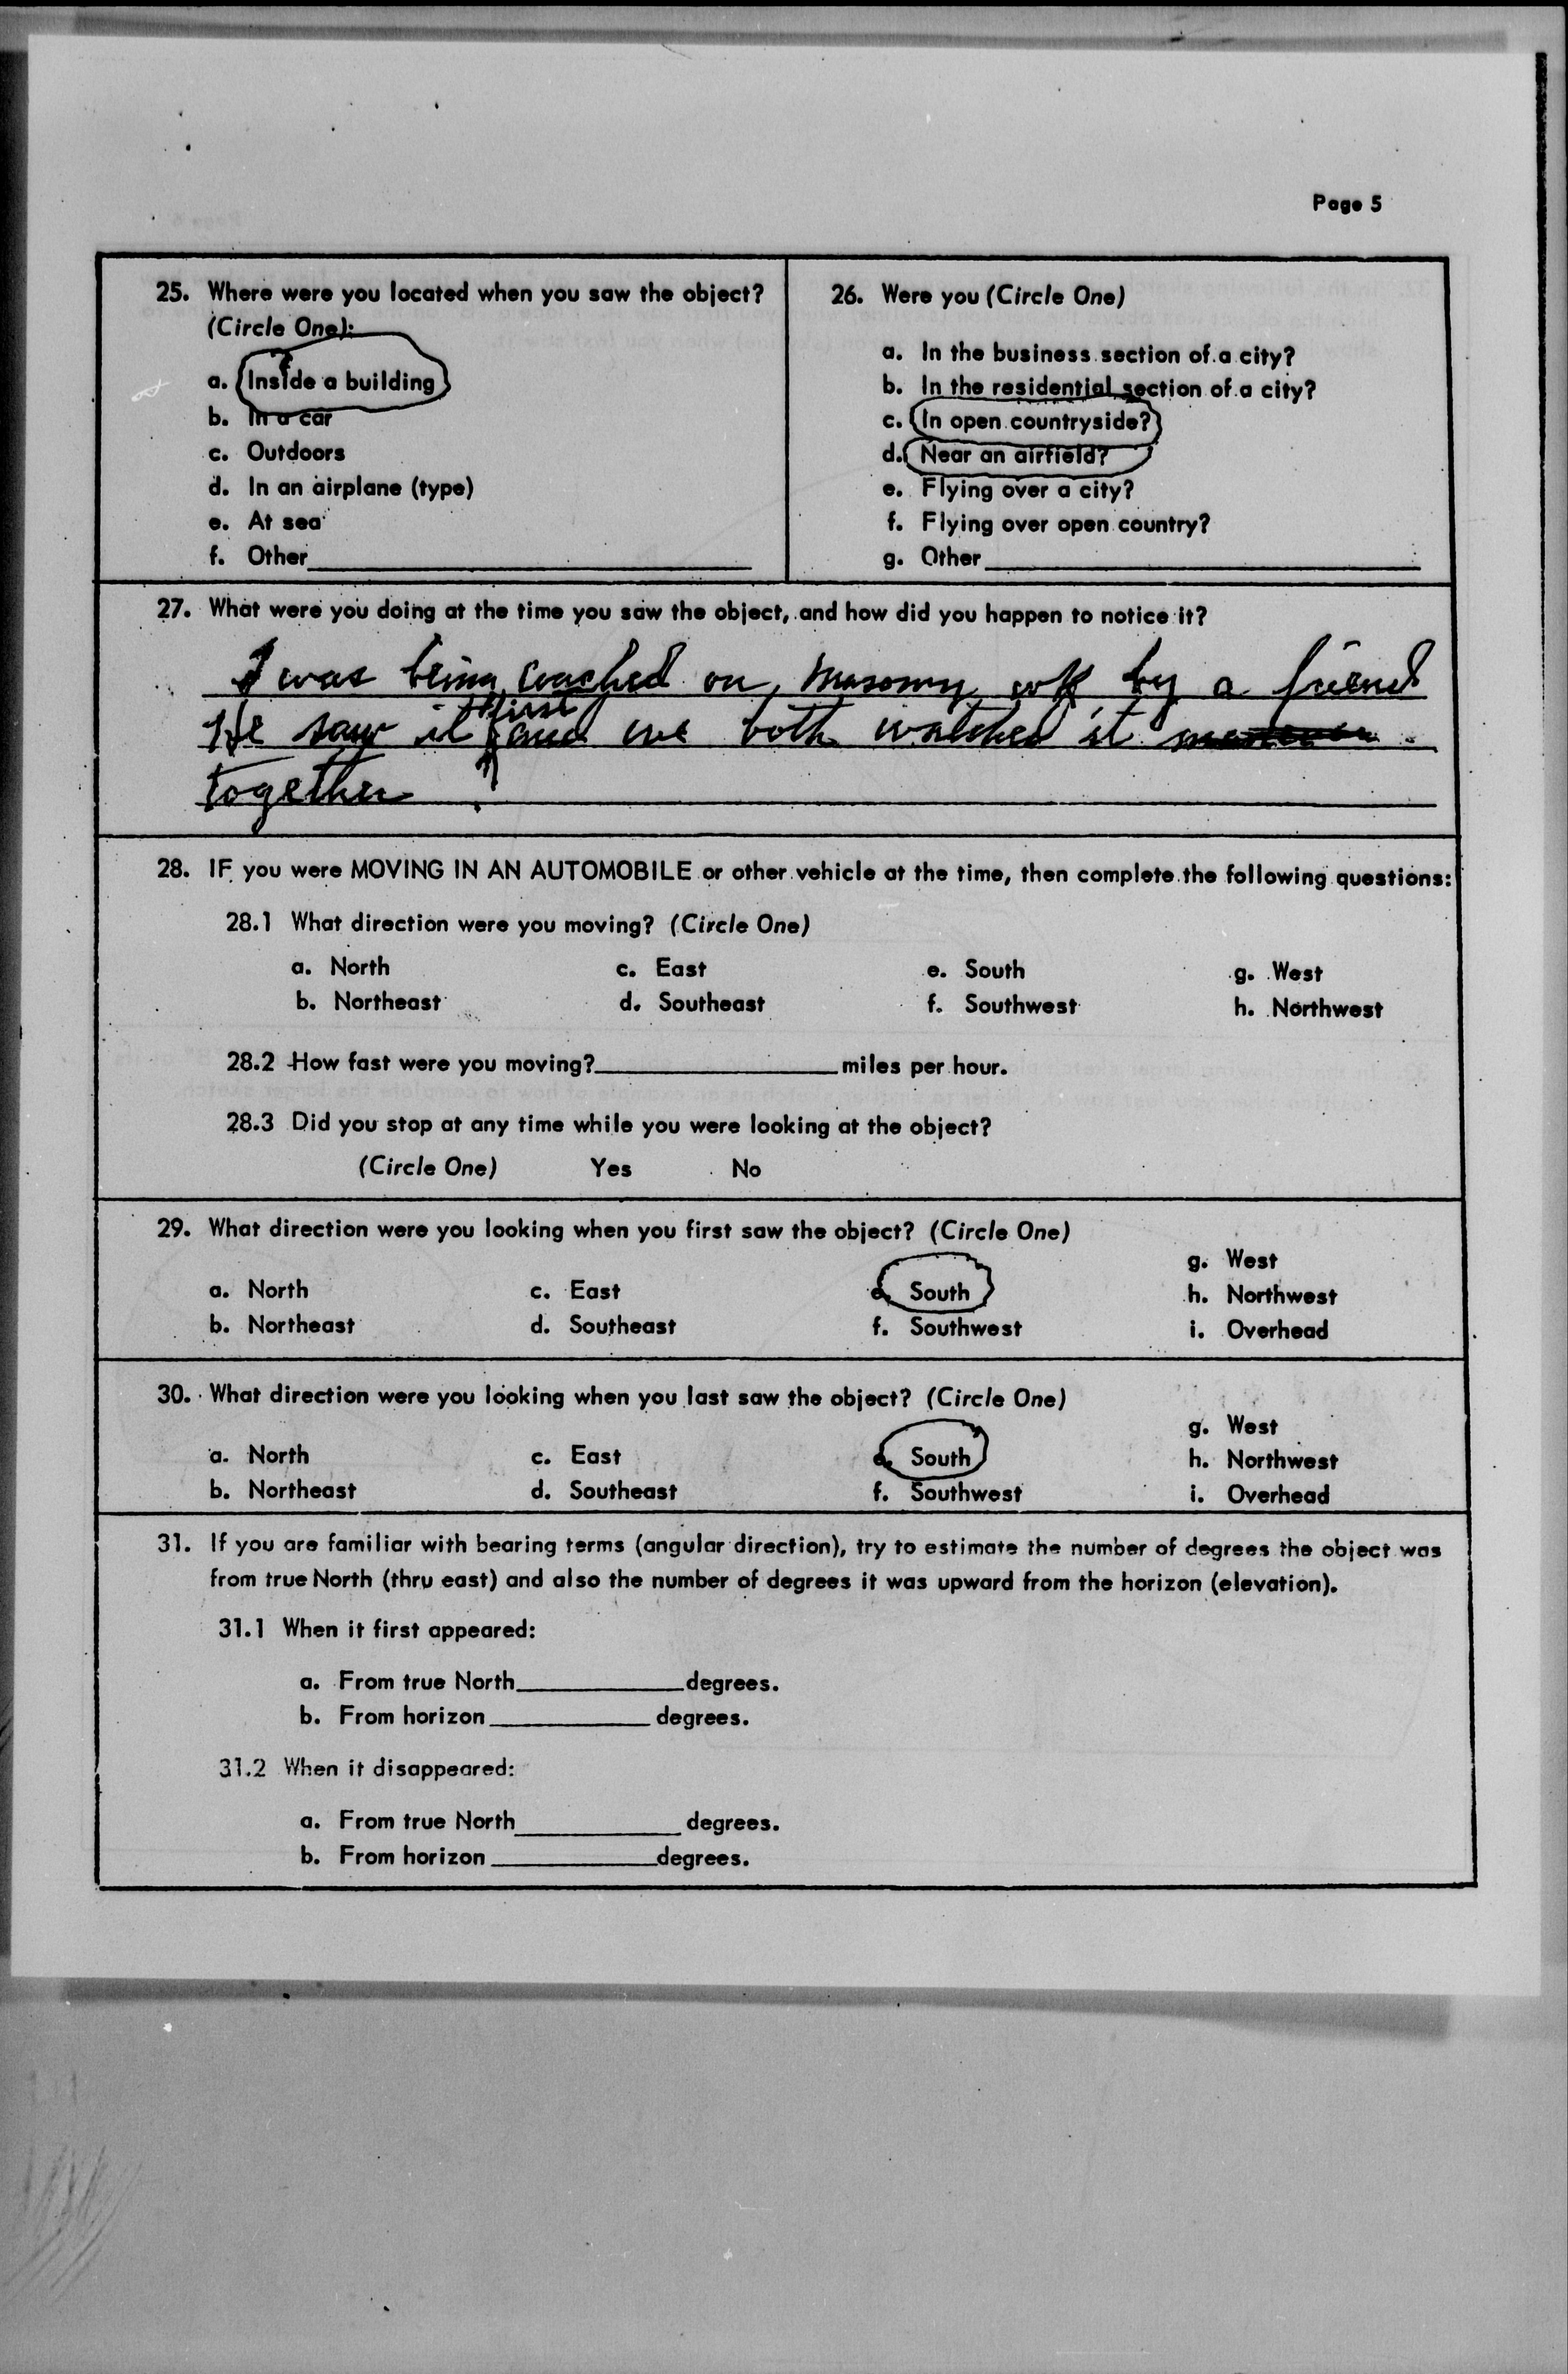 Page 5
25. Where were you located when you saw the object?
(Circle One):
a. Inside a building
b. In a car
c. Outdoors
d. In an airplane (type)
e. At sea
f. Other
26. Were you (Circle One)
a. In the business section of a city?
b. In the residential section of a city?
c. In open countryside?
d. Near an airfield?
e. Flying over a city?
f. Flying over open country?
g. Other
27. What were you doing at the time you saw the object, and how did you happen to notice it?
I was being coached on masonry wk by a friend
He saw it first and we both watched it
together
28. IF you were MOVING IN AN AUTOMOBILE or other vehicle at the time, then complete the following questions:
28.1 What direction were you moving? (Circle One)
a. North c. East e. South g. West
b. Northeast d. Southeast f. Southwest h. Northwest
28.2 How fast were you moving? miles per hour.
28.3 Did you stop at any time while you were looking at the object?
(Circle One) Yes No
29. What direction were you looking when you first saw the object? (Circle One)
g. West
a. North c. East e. South h. Northwest
b. Northeast d. Southeast f. Southwest i. Overhead
30. What direction were you looking when you last saw the object? (Circle One)
g. West
a. North c. East e. South h. Northwest
b. Northeast d. Southeast f. Southwest i. Overhead
31. If you are familiar with bearing terms (angular direction), try to estimate the number of degrees the object was
from true North (thru east) and also the number of degrees it was upward from the horizon (elevation).
31.1 When it first appeared:
a. From true North degrees.
b. From horizon degrees.
31.2 When it disappeared:
a. From true North degrees.
b. From horizon degrees.